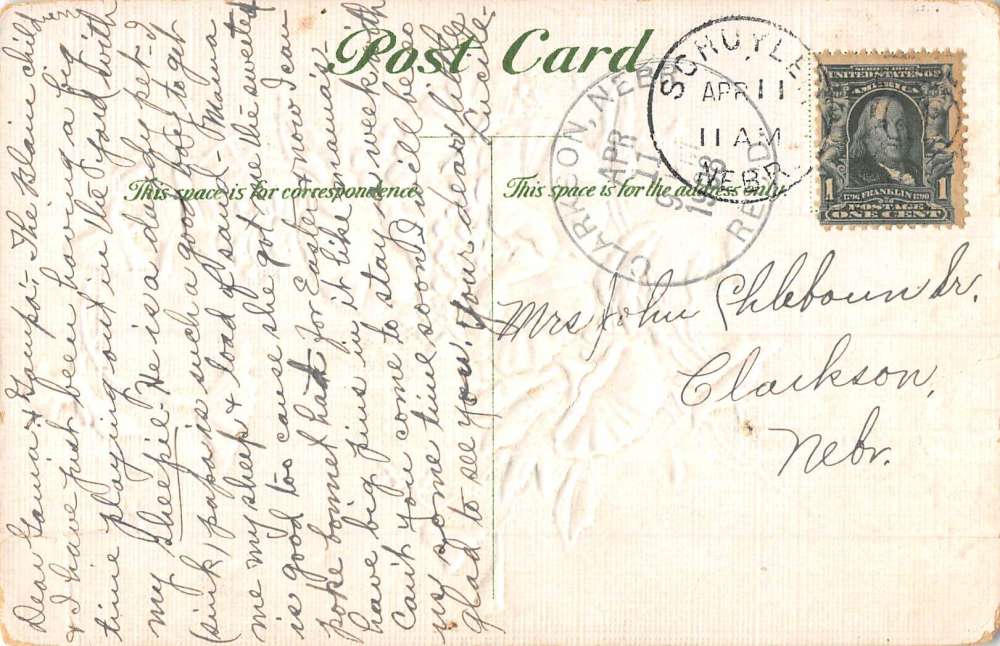 Post Card
This space is for correspondence
This space is for the address only
SCHUYLER
APR 11
11 AM
NEBR.
CLARKSON, NEBR
APR
11
1908
REC'D
UNITED STATES OF
AMERICA
1706 FRANKLIN 1790
1
POSTAGE
ONE CENT
Mrs John Chleboun Sr.
Clarkson,
Nebr.
Dear Gamia & Gampa:- The Blain child
& I have just been having a big
time playing out in the yard with
my sheepie. He is a dandy pet - I
think papa is such a good papa to get
me my sheep & load of sand - Mama
is good too cause she got me the sweetest
poke bonnet hat for Easter & now I can
have big pins in it like mamma -
Can't you come to stay a week with
us some time soon I will be so
glad to see you. Your dear little
Lucile -